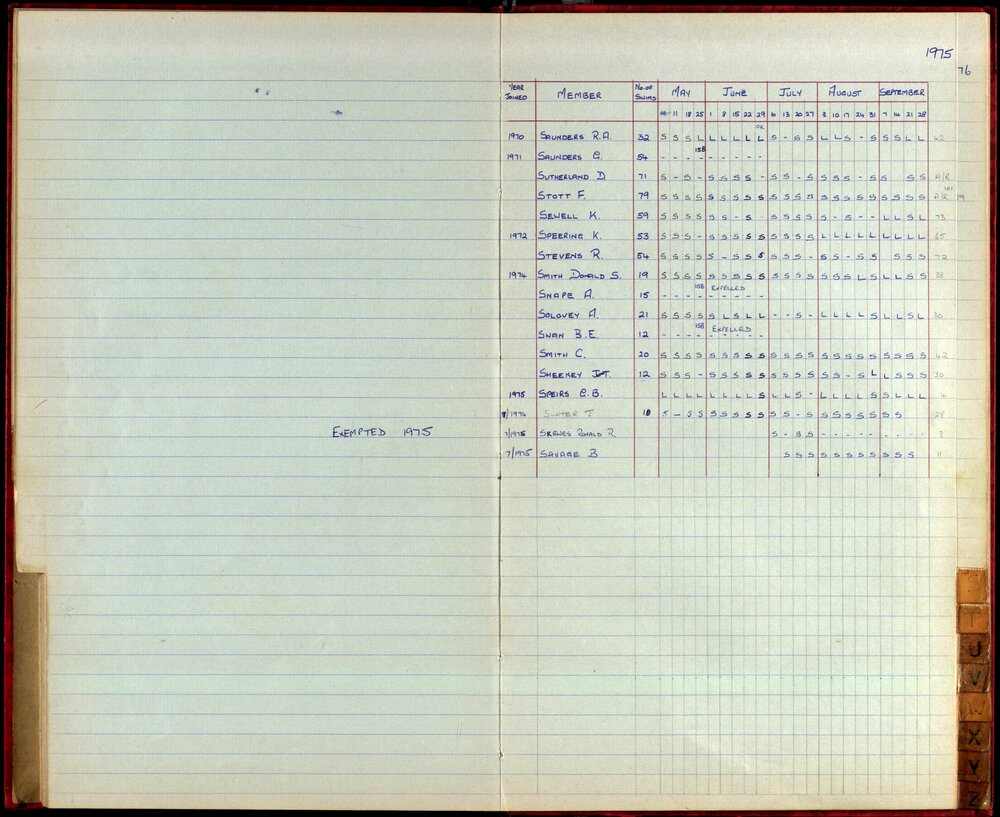 1975
76
YEAR JOINED MEMBER No. OF SWIMS MAY JUNE JULY AUGUST SEPTEMBER
11 18 25 1 8 15 22 29 6 13 20 27 3 10 17 24 31 7 14 21 28
OK
1970 SAUNDERS R.A. 32 S S S L L L L L L S - S S L L S - S S S L L 42
15B
1971 SAUNDERS G. 54 - - - - - - - - -
SUTHERLAND D. 71 S - S - S S S S - S S - S S S S - S S S S A/R
101
STOTT F. 79 S S S S S S S S S S S S S S S S S S S S S S A/R 19
SEWELL K. 59 S S S S S S - S S S S S S - S - - L L S L 73
1972 SPEERING K. 53 S S S - S S S S S S S S S L L L L L L L L L 65
STEVENS R. 54 S S S S S - S S S S S S - S S - S S S S S 72
1974 SMITH DONALD S. 19 S S S S S S S S S S S S S S S S L S L L S S 38
15B EXPELLED
SNAPE A. 15 - - - - - - - - -
SOLOVEY A. 21 S S S S S L S L L - - S - L L L L S L L S L 30
15B EXPELLED
SWAN B.E. 12 - - - - - - - - -
SMITH C. 20 S S S S S S S S S S S S S S S S S S S S S S 42
SHEEKEY T. 12 S S S - S S S S S S S S S S S - S L L S S S 30
1975 SPEIRS G.B. L L L L L L L L S L L S - L L L L S S L L L 4
/1974 SLATER J 18 S - S S S S S S S S S - S S S S S S S S 28
EXEMPTED 1975 7/1975 SKEWES RONALD R. S - S S - - - - - - - - - 3
7/1975 SAVAGE B S S S S S S S S S S S 11
S
T
U
V
W
X
Y
Z